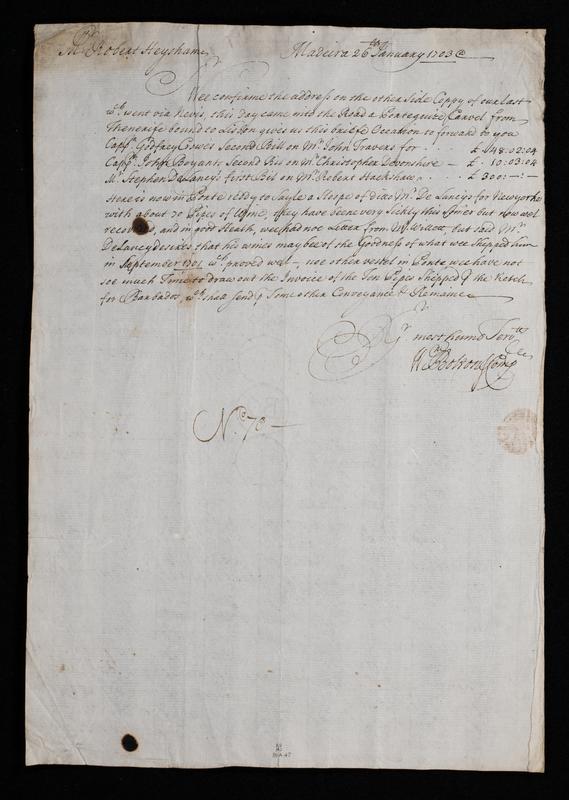 Mr Robert Heysham Madeira 26th January 1703
Sr
Wee confirme the address on the other side Coppy of our Last
wch went via Nevis, this day came into the Road a Porteguize Carvel from
Thenerife bound to Lisbon gives us this breife Occation to forward to you
Capt. Godfrey Gowes Second Bill on Mr John Travers for - - £ 148:02:04
Capt. John Bryants Second Bill on Mr Christopher Devonshire - £ 10:03:04
Mr Stephen DeLancys first Bil on Mr Robert Hackshaw - £ 300:-:-
Here is now in Ponte ready to Sayle a Sloope of ditto Mr De Lancys for Newyorke
with about 70 Pipes of Wine, they have been very Sickly this but now wel
recovered, and in good Heath, wee had noe Letter from but said Mr
DeLancy desires that his wines may bee of the Goodness of what wee Shipped him
in September 1701 wch proved well -, noe other vessel in Ponte, wee have not
soe much Time to draw out the Invoice of the Ten Pipes Shipped the Ketch
for Barbados, wch shall send Time other Conveyance & Remaine
Sr
Yr most humb Servts
W Bolton & Comp
No 70 -